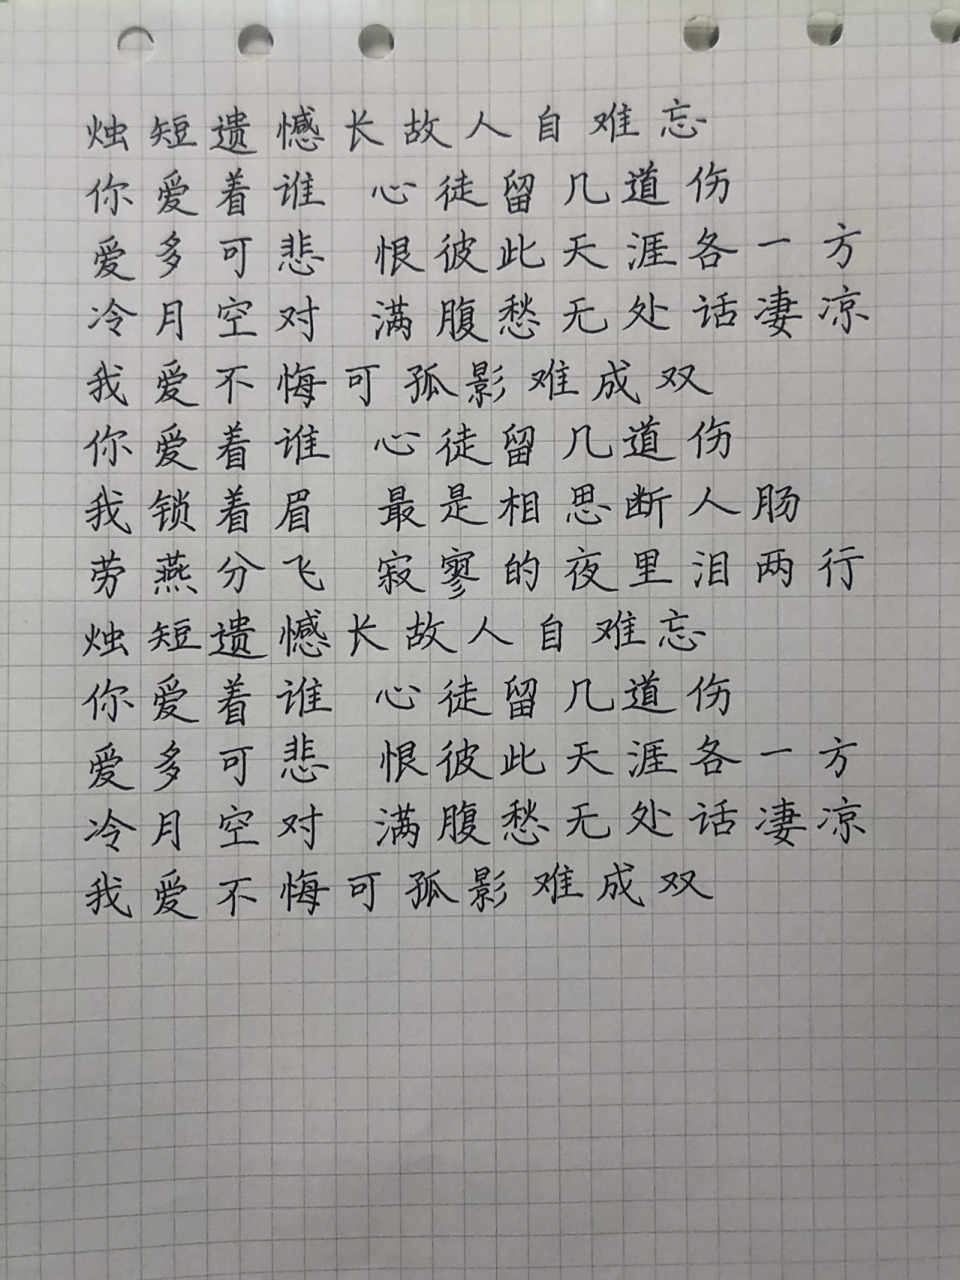 烛短遗憾长故人自难忘
你爱着谁 心徒留几道伤
爱多可悲 恨彼此天涯各一方
冷月空对 满腹愁无处话凄凉
我爱不悔可孤影难成双
你爱着谁 心徒留几道伤
我锁着眉 最是相思断人肠
劳燕分飞 寂寥的夜里泪两行
烛短遗憾长故人自难忘
你爱着谁 心徒留几道伤
爱多可悲 恨彼此天涯各一方
冷月空对 满腹愁无处话凄凉
我爱不悔可孤影难成双